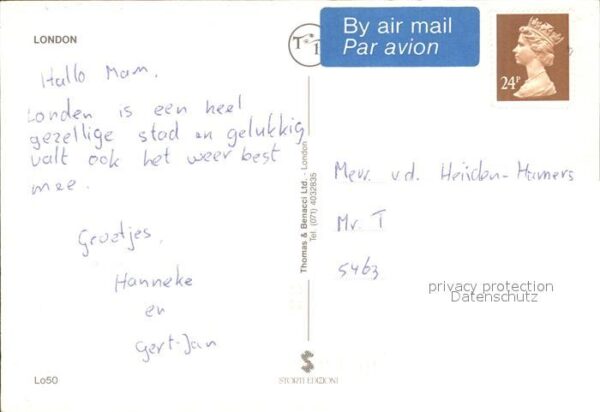 LONDON
Hallo Mam,
Londen is een heel
gezellige stad en gelukkig
valt ook het weer best
mee.
Groetjes,
Hanneke
en
Gert-Jan
Lo50
Thomas & Benacci Ltd. - London
Tel. (071) 4032835
STORTI EDIZIONI
By air mail
Par avion
24P
Mevr. v.d. Heijden-Hamers
Mr. T
5463
privacy protection
Datenschutz